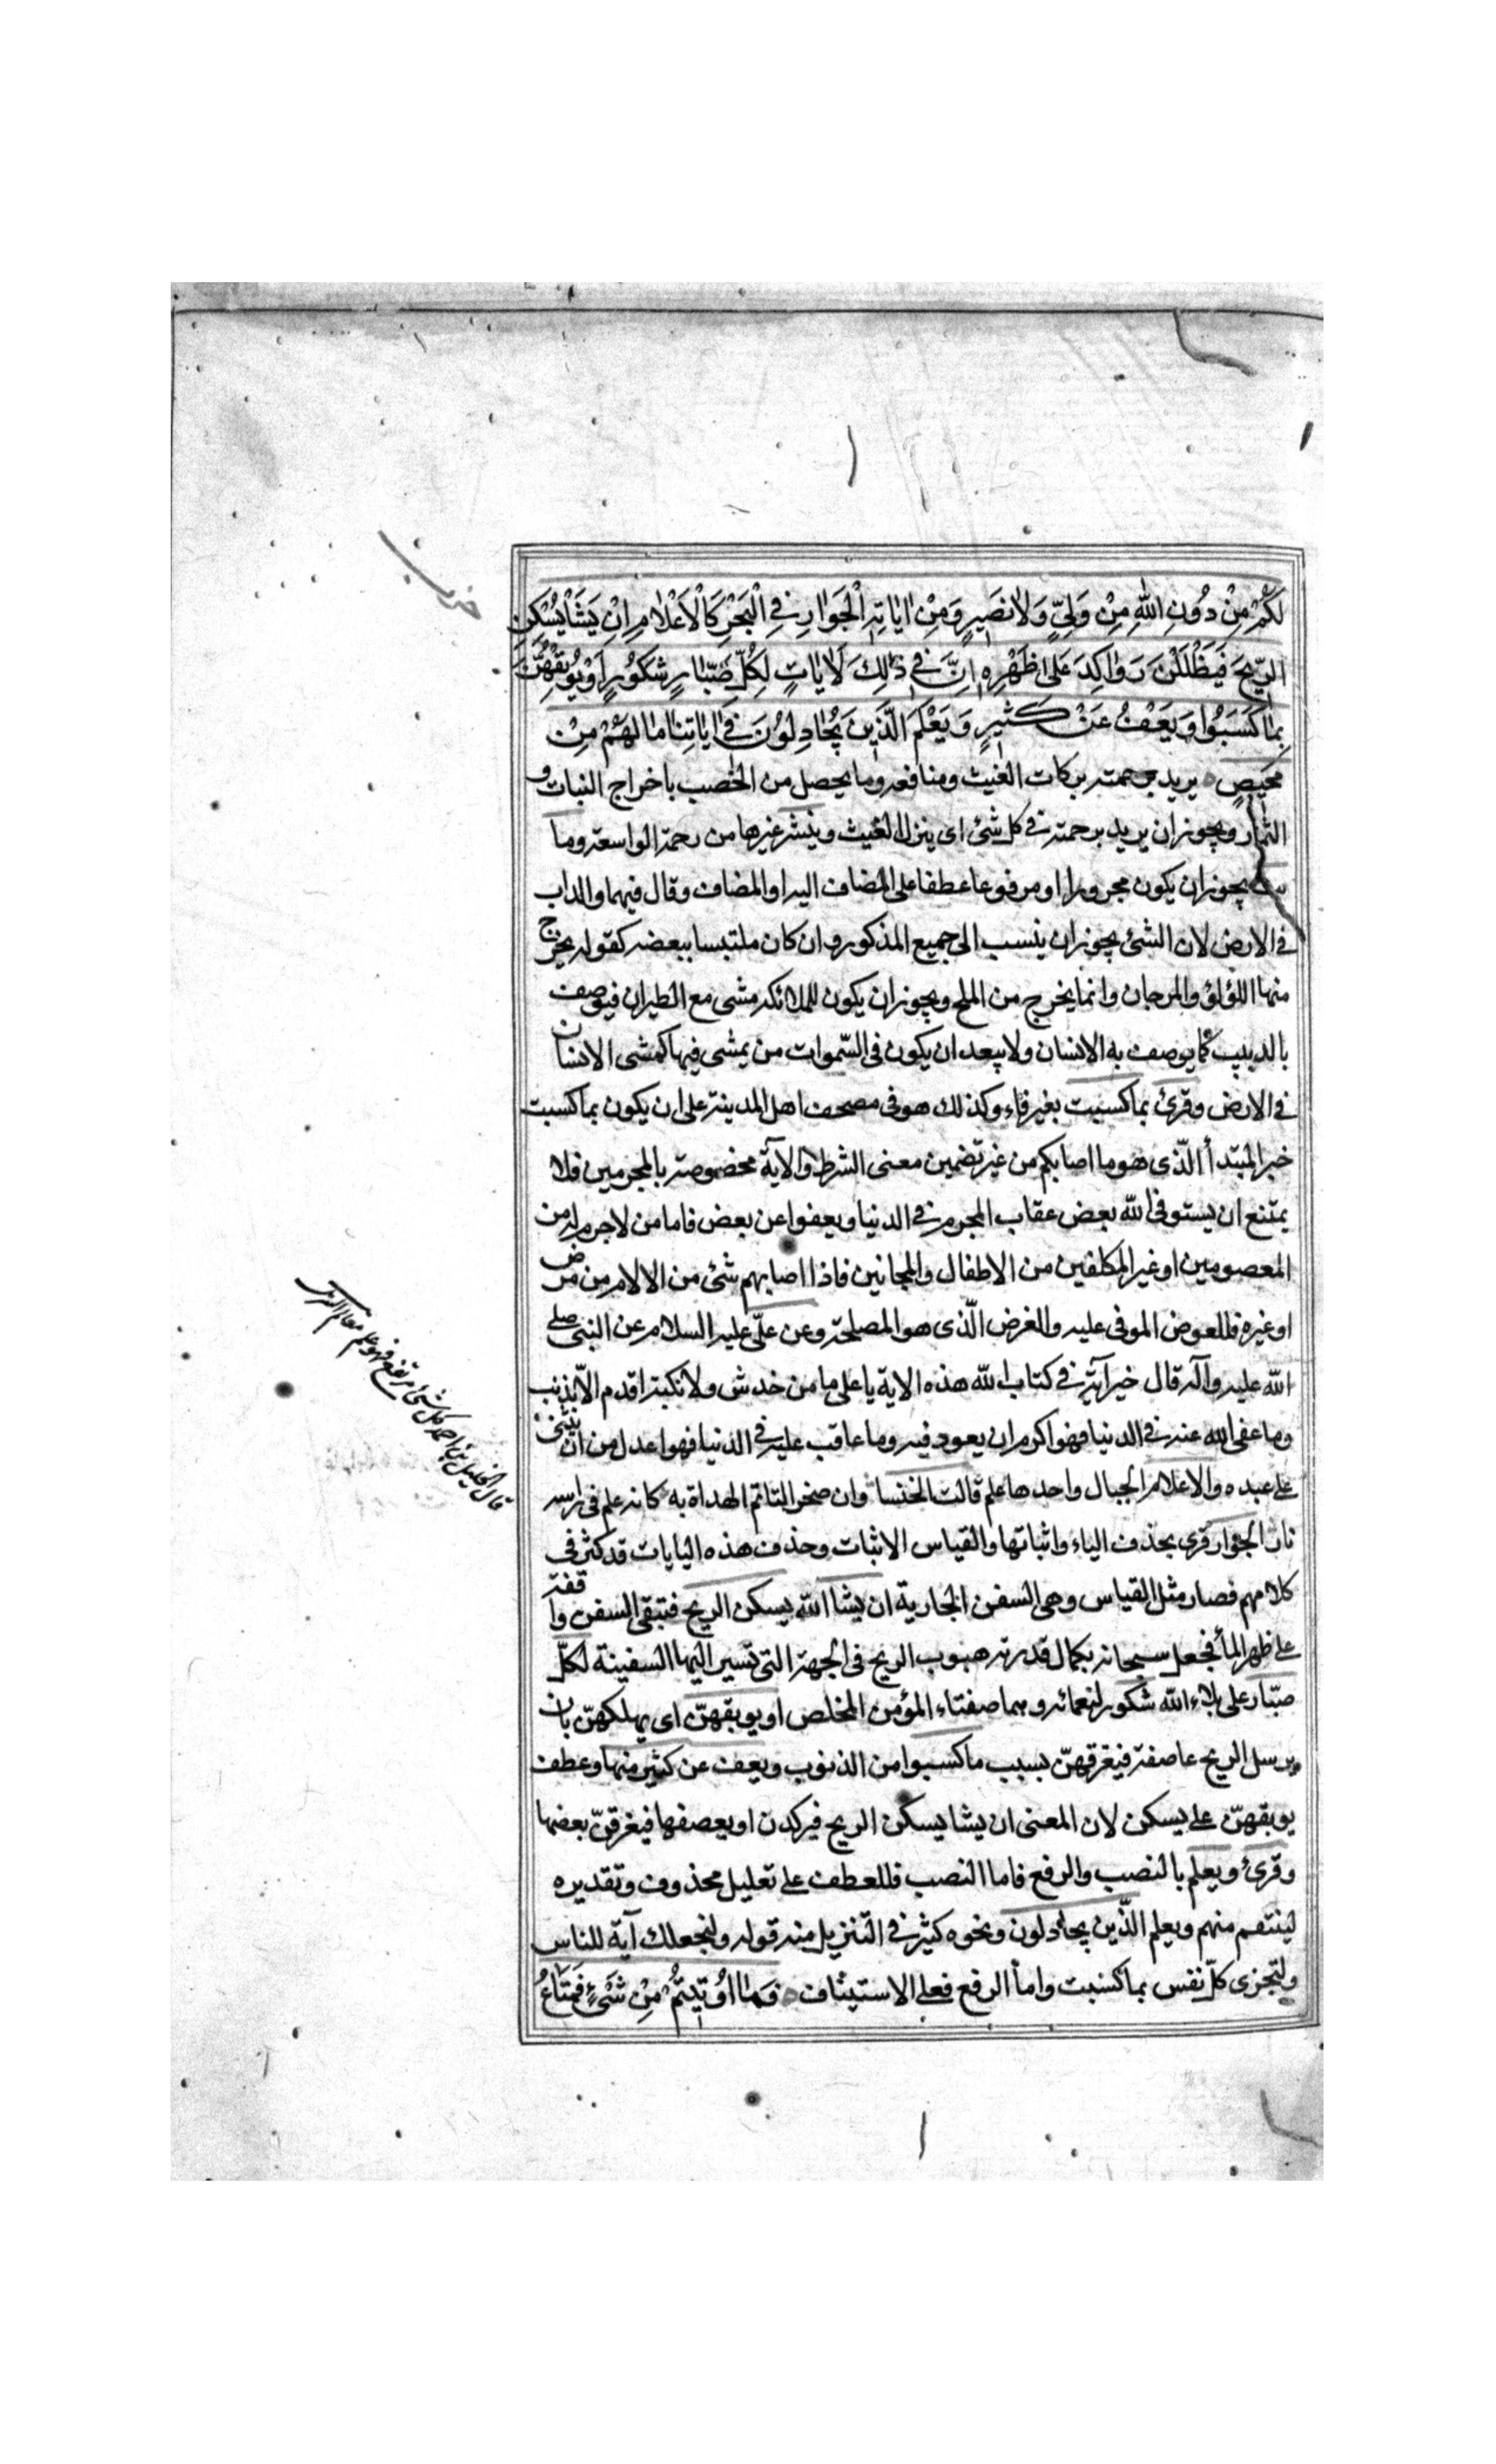 لَكُمْ مِنْ دُونِ اللّٰهِ مِنْ وَلِيٍّ وَلَا نَصِيرٍ وَمِنْ اٰيَاتِهِ الْجَوَارِ فِي الْبَحْرِ كَالْاَعْلَامِ اِنْ يَشَأْ يُسْكِنِ
الرِّيحَ فَيَظْلَلْنَ رَوَاكِدَ عَلَىٰ ظَهْرِهِ اِنَّ فِي ذٰلِكَ لَاٰيَاتٍ لِكُلِّ صَبَّارٍ شَكُورٍ اَوْ يُوبِقْهُنَّ
بِمَا كَسَبُوا وَيَعْفُ عَنْ كَثِيرٍ وَيَعْلَمَ الَّذِينَ يُجَادِلُونَ فِي اٰيَاتِنَا مَا لَهُمْ مِنْ
مَحِيصٍ يريد برحمته بركات الغيث ومنافعه وما يحصل من الخصب باخراج النبات و
الثمار ويجوز ان يريد برحمته في كل شئ اى ينزل الغيث وينشر غيرها من رحمته الواسعة وما
بث يجوز ان يكون مجرورا او مرفوعا عطفا على المضاف اليه او المضاف وقال فيهما والداب
في الارض لان الشئ يجوز ان ينسب الى جميع المذكور وان كان ملتبسا ببعضه كقوله يخرج
منها اللؤلؤ والمرجان وانما يخرج من الملح ويجوز ان يكون للملائكه مشى مع الطيران فيوصف
بالدبيب كما يوصف به الانسان ولا يبعد ان يكون في السّموات من يمشى فيها كمشى الانسان
في الارض وقرئ بما كسبت بغير فاء وكذلك هو في مصحف اهل المدينة على ان يكون بما كسبت
خبر المبتدأ الّذى هو ما اصابكم من غير تضمين معنى الشرط والاية مخصوصة بالمجرمين فلا
يمتنع ان يستوفى الله بعض عقاب المجرم في الدنيا ويعفوا عن بعض فاما من لا جرم له من
المعصومين او غير المكلفين من الاطفال والمجانين فاذا اصابهم شئ من الالام من مرض
او غيره فللعوض الموفى عليه والغرض الّذى هو المصلحة وعن علّى عليه السلام عن النبى صلى
الله عليه وآله قال خير آية في كتاب الله هذه الاية يا على ما من خدش ولا نكبة اقدم الا بذنب
وما عفى الله عنه في الدنيا فهو اكرم ان يعود فيه وما عاقب عليه في الدنيا فهو اعدل من ان يثنى
على عبده والاعلام الجبال واحدها علم قالت الخنسا وان صخرا لتاتم الهداة به كانه علم في راسه
نار الجوار قرى بحذف الياء واثباتها والقياس الاثبات وحذف هذه اليايات قد كثر في
كلامهم فصار مثل القياس وهى السفن الجارية ان يشا الله يسكن الريح فتبقى السفن واقفة
على ظهر الماء فجعل سبحانه بكمال قدرته هبوب الريح في الجهة التى تسير اليها السفينة لكلّ
صبّار على بلاء الله شكور لنعمائه وهما صفتاء المؤمن المخلص او يوبقهنّ اى يهلكهنّ بان
يرسل الريح عاصفة فيغرقهنّ بسبب ما كسبوا من الذنوب ويعف عن كثير منها وعطف
يوبقهنّ على يسكن لان المعنى ان يشا يسكن الريح فيركدن او يعصفها فيغرقنّ بعضها
وقرئ ويعلم بالنصب والرفع فاما النصب فللعطف على تعليل محذوف وتقديره
لينتقم منهم ويعلم الّذين يجادلون ونحوه كثير في التنزيل منه قوله ولنجعلك آية للناس
ولتجزى كلّ نفس بما كسبت واما الرفع فعلى الاستيناف فَمَا اُوتِيتُمْ مِنْ شَيْءٍ فَمَتَاعُ
قال الخليل بن احمد كل شئ مرتفع فهو علم